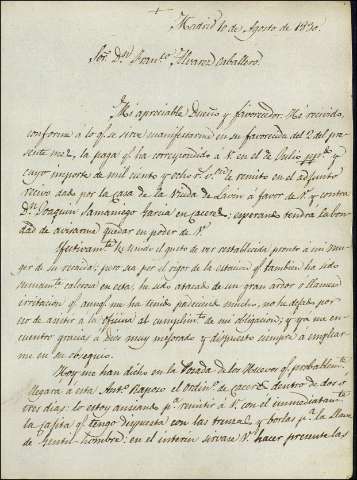 Madrid 10 de Agosto de 1830.
Sor. Dn. Franco. Alvarez Caballero.
Mi apreciable Dueño y favorecedor: He recivido,
conforme á lo q. se sirve manifestarme en su favorecida del 2 del pre-
sente mes, la paga q. ha correspondido á V. en el de Julio ppdo. y
cuyo importe de mil ciento y ocho rs. vn. le remito en el adjunto
recivo dado por la Casa de la Viuda de á favor de V. y contra
Dn. Joaquin Samaniego Garcia en Caceres; esperando tendrá la bon-
dad de avisarme quedar en poder de V.
Efectivamte. he tenido el gusto de ver restablecida pronto á mi mu-
ger de su recaida; pero sea por el rigor de la estacion q. tambien ha sido
sumamte. calorosa en esta, he sido atacado de un grande ardor ó
irritacion q. aunq. me ha tenido padeciendo mucho, no he dejado por
eso de asistir á la oficina al cumplimto. de mi obligacion; y ya me en-
cuentro gracias á Dios muy mejorado y dispuesto siempre á emplear-
me en su obsequio.
Hoy me han dicho en la Posada de los Huevos q. probablemte.
llegará á esta Anto. Raposo el ordino. de Caceres dentro de dos ó
tres dias: lo estoy ansiando pa. remitir á V. con él inmediatamte.
la cajita q. tengo dispuesta con las trenzas y borlas pa. la llave
de Gentil-hombre: en el interin sirvase V. hacer presente las